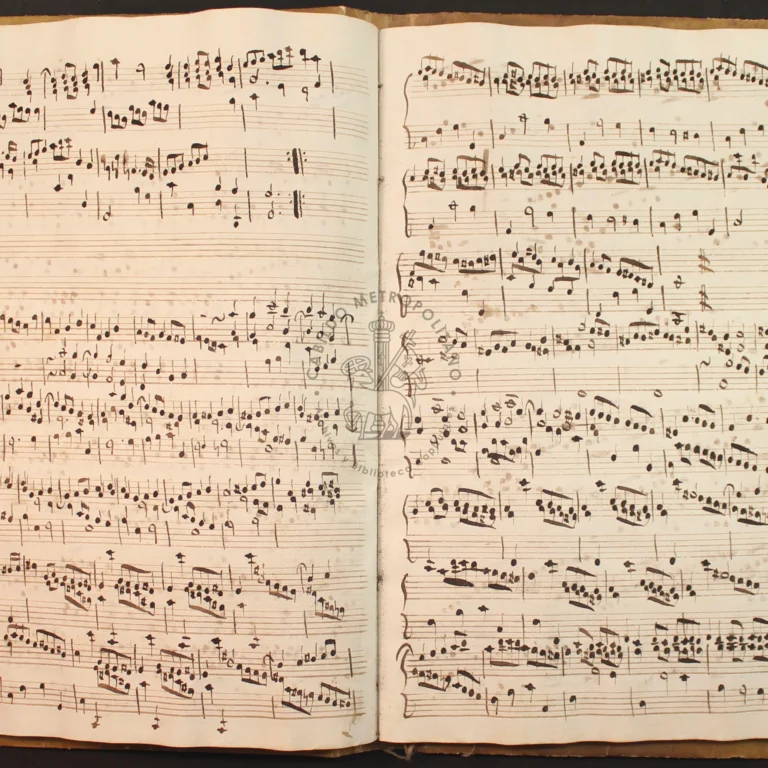 CABILDO METROPOLITANO
y biblioteca